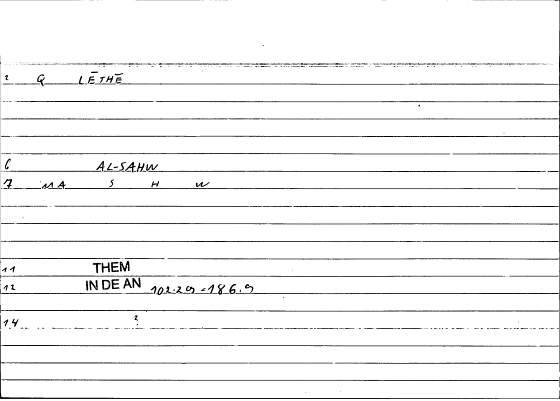 2 Q LĒTHĒ
6 AL-SAHW
7 MA S H W
11 THEM
12 IN DE AN 102.29 - 186.9
14 2